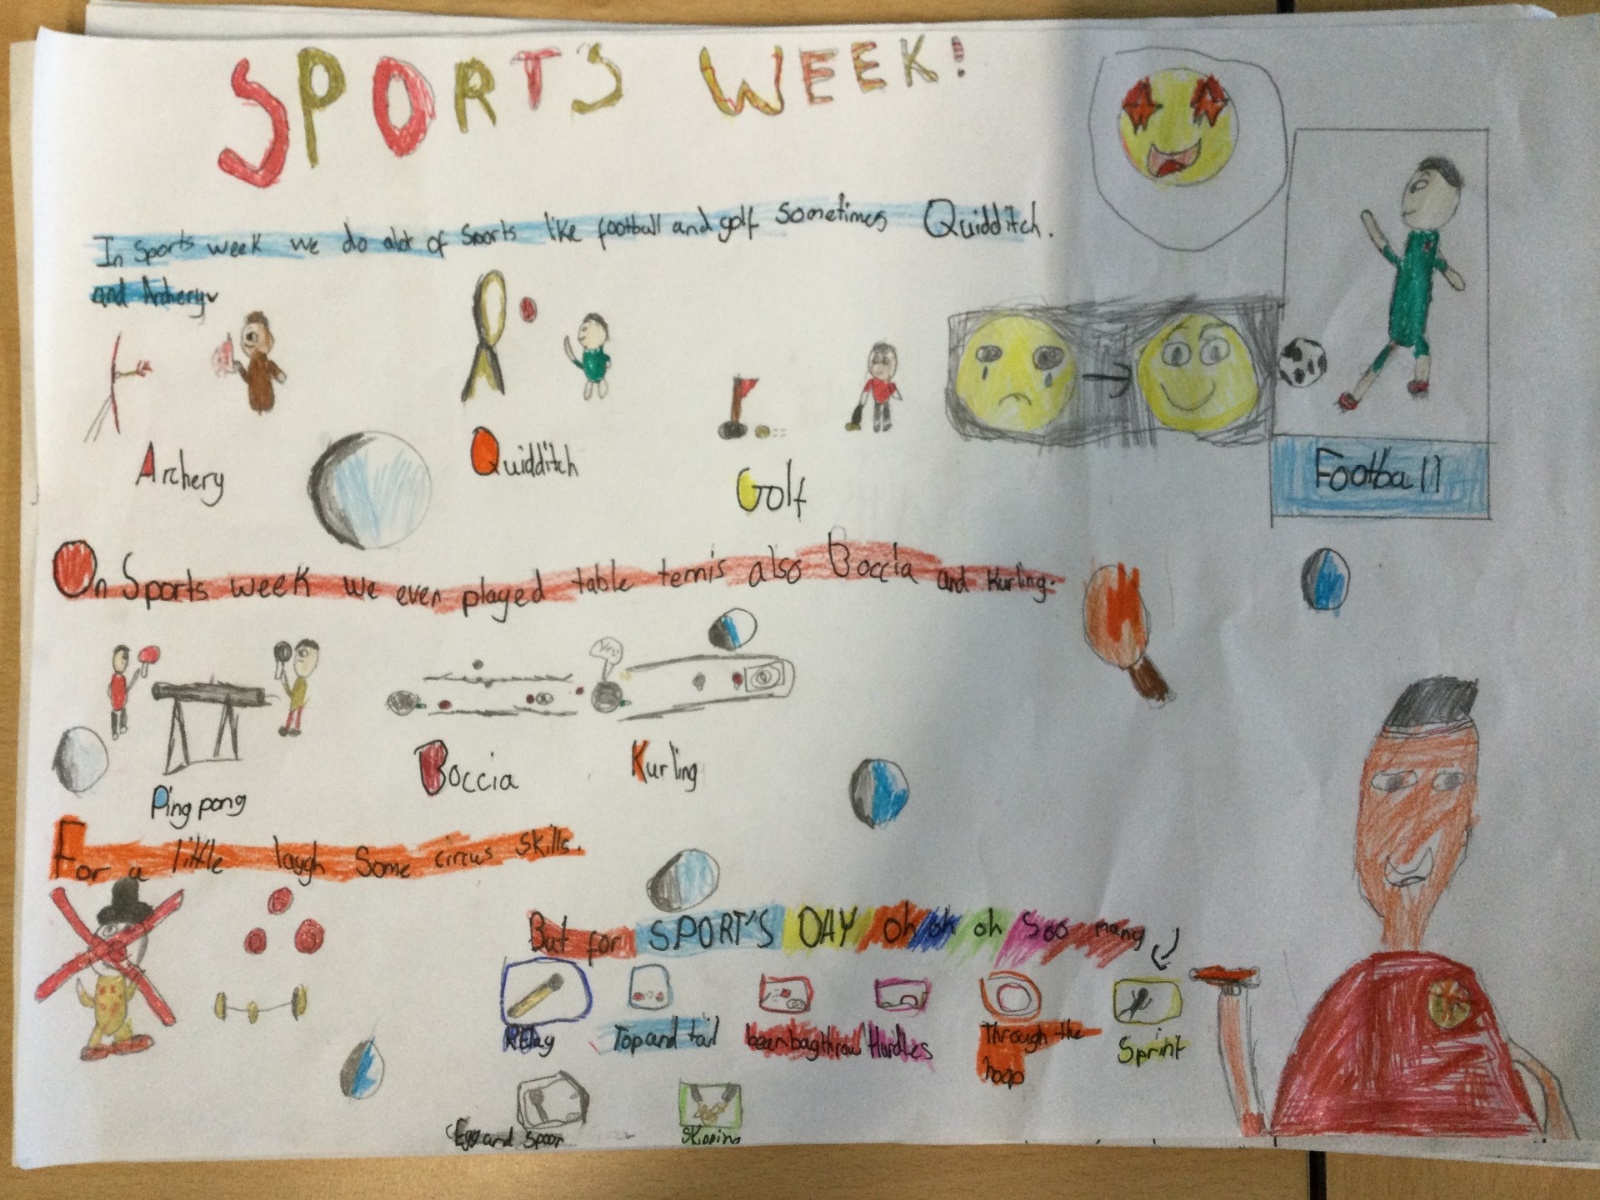 SPORTS WEEK!
In Sports week we do alot of Sports like football and golf Sometimes Quidditch.
and Archery
Archery
Quidditch
Golf
Football
On Sports week we even played table tennis also Boccia and Kurling.
Yes
Ping pong
Boccia
Kurling
For a little laugh Some circus skills.
But for SPORT'S DAY oh oh oh Soo many
Relay
Top and tail
beanbag throw
Hurdles
Through the
hoop
Sprint
Egg and Spoon
Skipping